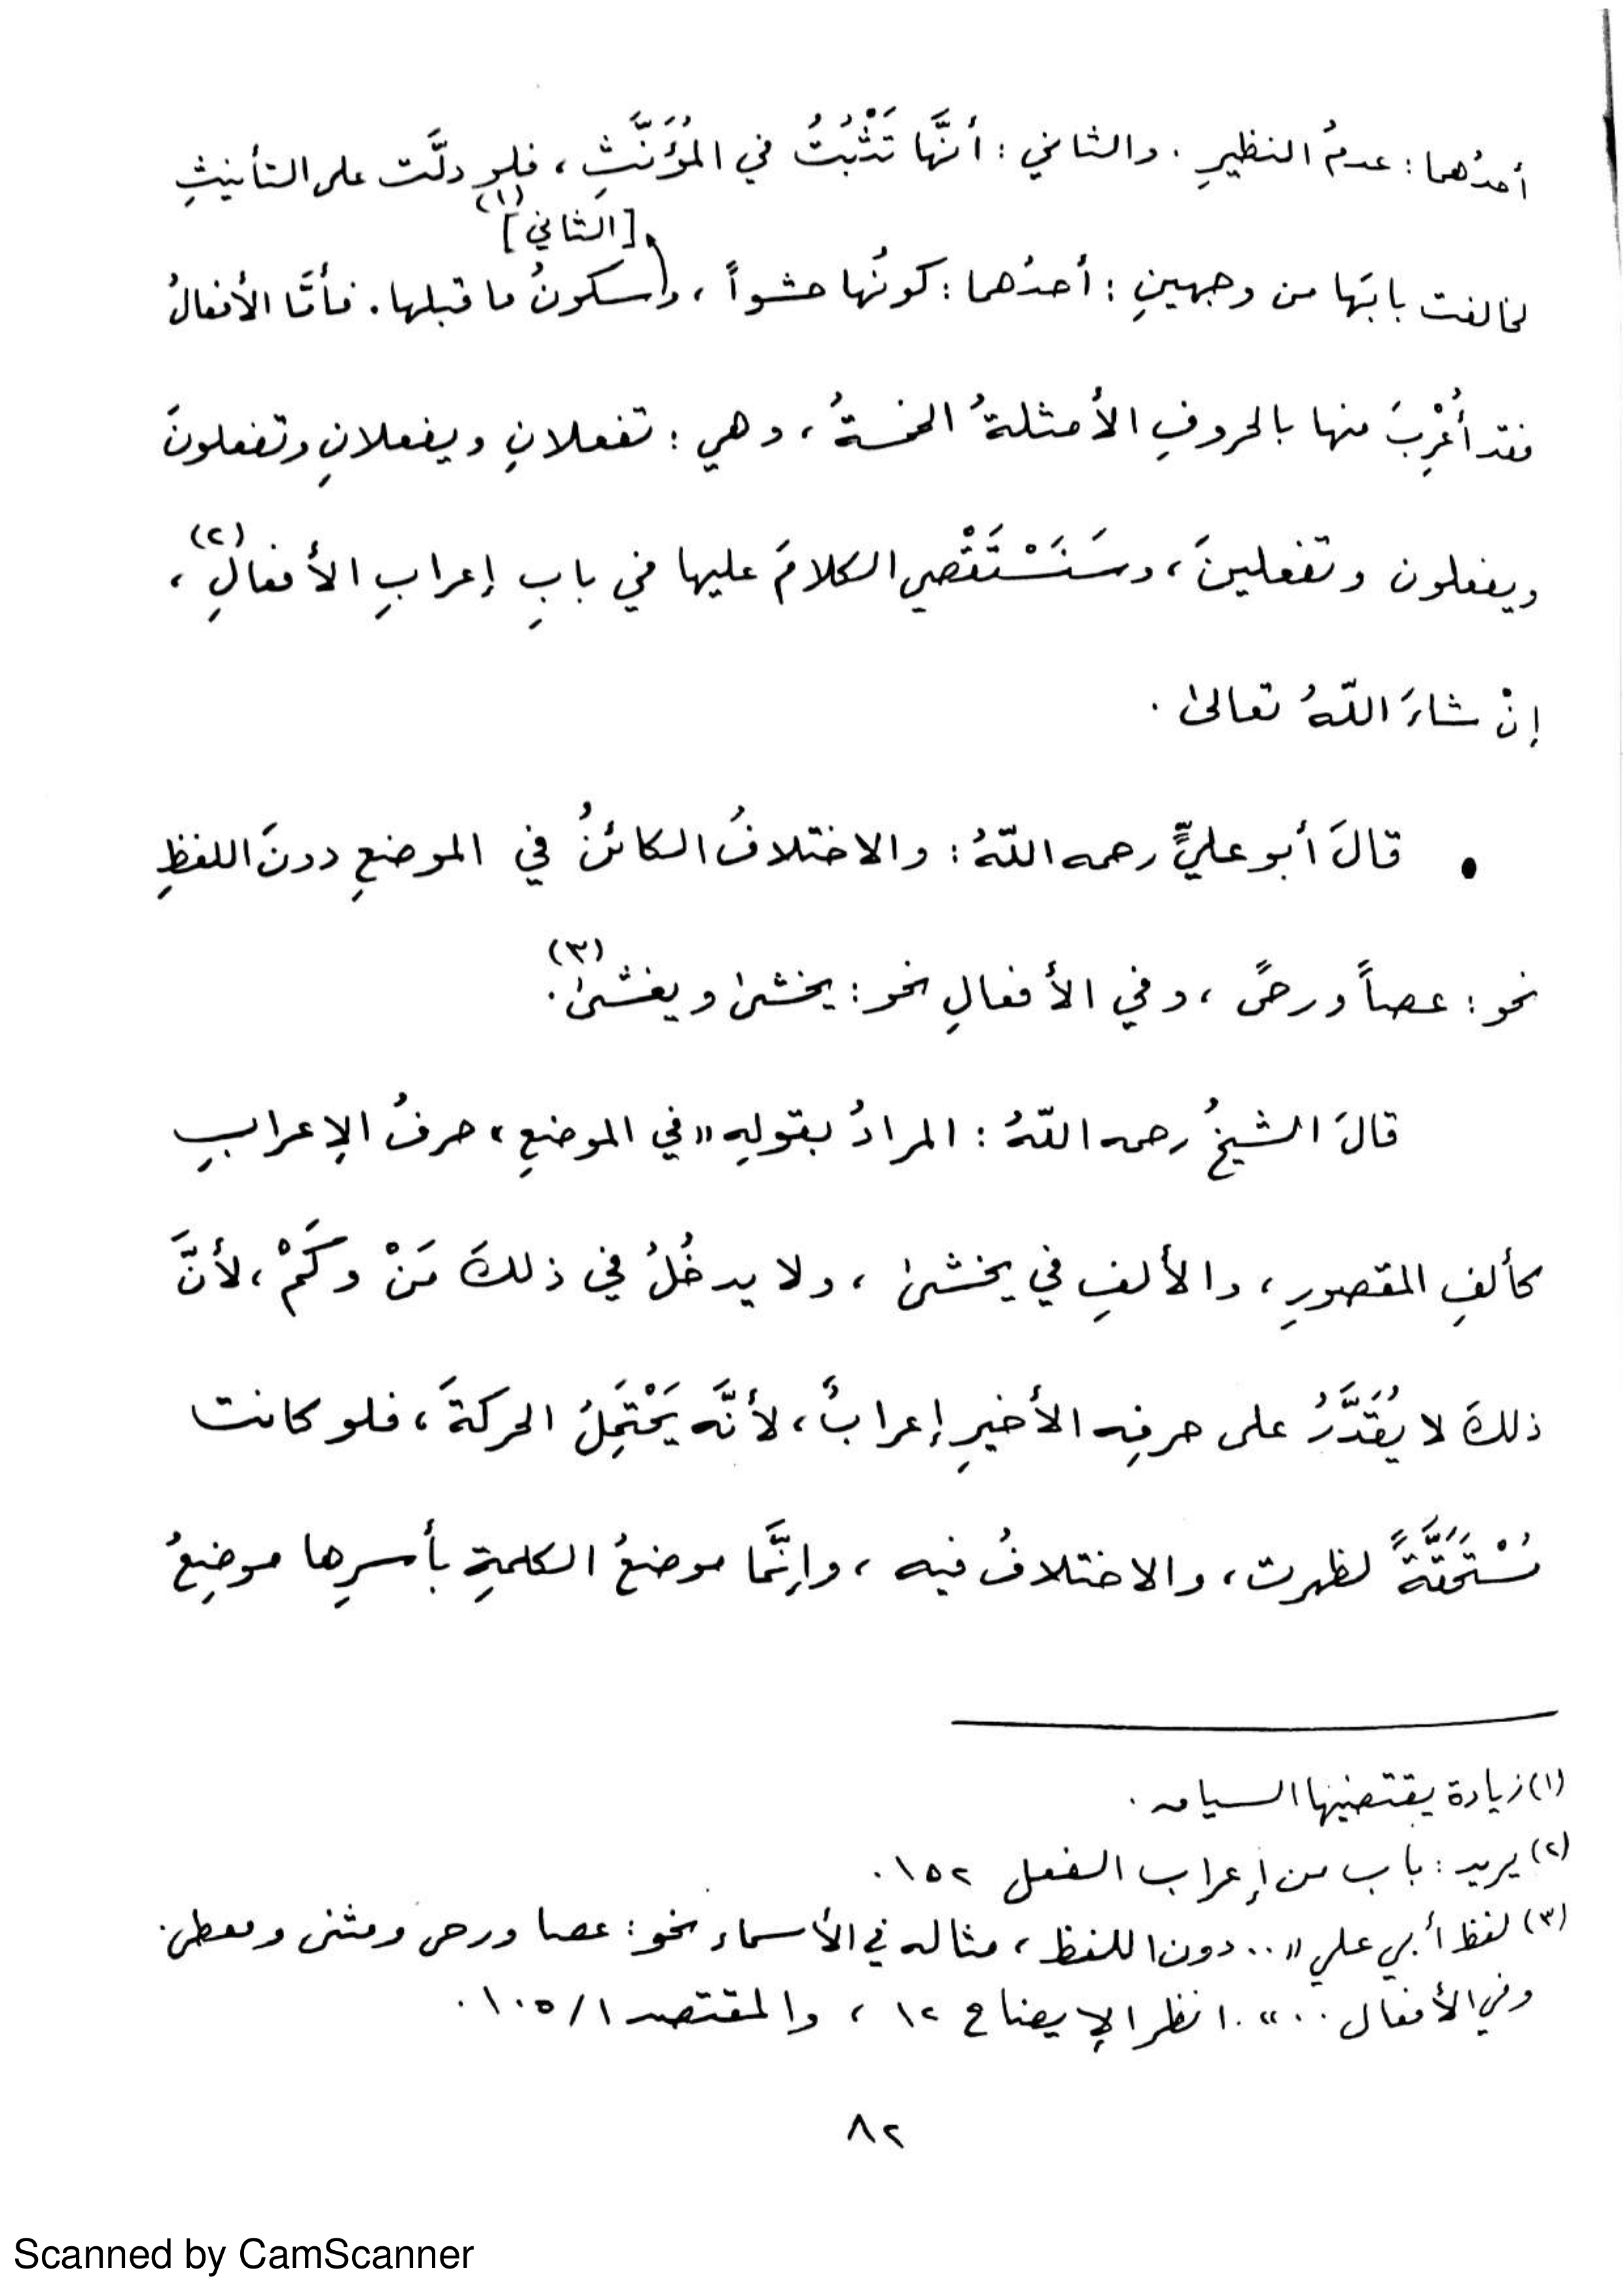 أحدُهما : عدمُ النظيرِ . والثاني : أنَّها تَثْبُتُ في المُؤَنَّثِ ، فلو دلَّت على التأنيثِ
[الثاني](١)
لخالفت بابَها من وجهينِ : أحدُهما : كونُها حشواً ، و سكونُ ما قبلها . فأمَّا الأفعالُ
فقد أُعْرِبَ منها بالحروفِ الأمثلةُ الخمسةُ ، وهي : تفعلانِ ويفعلانِ وتفعلونَ
ويفعلون وتفعلينَ ، وسَنَسْتَقْصِي الكلامَ عليها في بابِ إعرابِ الأفعالِ(٢) ،
إنْ شاءَ اللّهُ تعالى .
• قالَ أبو عليٍّ رحمه اللّهُ : والاختلافُ الكائنُ في الموضعِ دونَ اللفظِ
نحو : عصاً ورحىً ، وفي الأفعالِ نحو : يخشى ويغشى(٣) .
قالَ الشيخُ رحمه اللّهُ : المرادُ بقولِهِ « في الموضعِ » حرفُ الإعرابِ
كألفِ المقصورِ ، والألفِ في يخشى ، ولا يدخُلُ في ذلكَ مَنْ وكَمْ ، لأنَّ
ذلكَ لا يُقَدَّرُ على حرفِه الأخيرِ إعرابٌ ، لأنَّه يَحْتَمِلُ الحركةَ ، فلو كانت
مُسْتَحَقَّةً لظهرت ، والاختلافُ فيه ، وإنَّما موضعُ الكلمةِ بأسرِها موضِعُ
(١) زيادة يقتضيها السياق .
(٢) يريد : باب من إعراب الفعل ١٥٢ .
(٣) لفظ أبي علي « .. دون اللفظ ، مثاله في الأسماء نحو : عصا ورحى ومثنى ومعطى .
وفي الأفعال .. » . انظر الإيضاح ١٢ ، والمقتصد ١/١٠٥ .
٨٢
Scanned by CamScanner